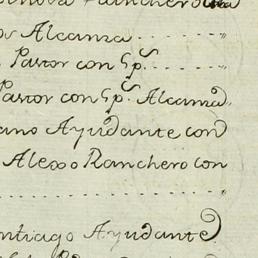 Ranchero
os Alcanza . . . . . . . "
Pastor con Gp.s . . . . . "
Pastor con Gp.s Alcanza.
ano Ayudante con
Alexo Ranchero con
. . . . . . . . . . . . . . . . "
ntiago Ayudante